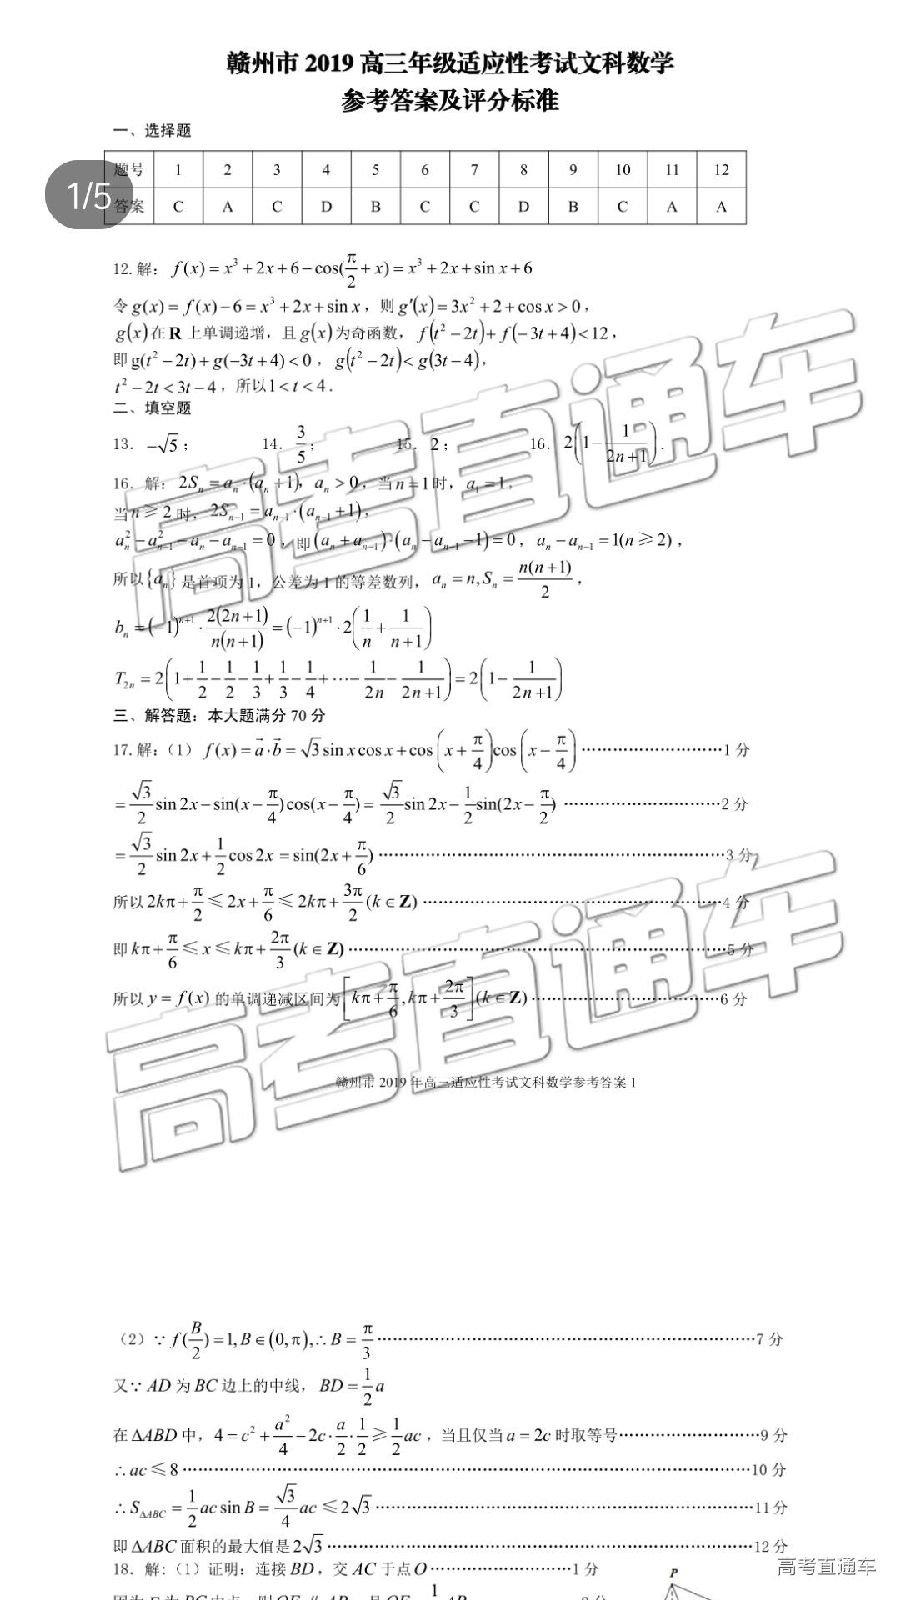 赣州市 2019 高三年级适应性考试文科数学
参考答案及评分标准
一、选择题
题号 1 2 3 4 5 6 7 8 9 10 11 12
1/5
答案 C A C D B C C D B C A A
12.解: f(x)=x³+2x+6-cos(π/2+x)=x³+2x+sin x+6
令 g(x)=f(x)-6=x³+2x+sin x，则 g′(x)=3x²+2+cos x>0，
g(x)在 R 上单调递增，且 g(x)为奇函数，f(t²-2t)+f(-3t+4)<12，
即 g(t²-2t)+g(-3t+4)<0，g(t²-2t)<g(3t-4)，
t²-2t<3t-4，所以 1<t<4.
二、填空题
13. -√5； 14. 3/5； 15. 2； 16. 2(1-1/(2n+1)).
16. 解: 2Sₙ=aₙ·(aₙ+1)，aₙ>0，当 n=1时，a₁=1，
当 n≥2 时，2Sₙ₋₁=aₙ₋₁·(aₙ₋₁+1)，
aₙ²-aₙ₋₁²-aₙ-aₙ₋₁=0，即(aₙ+aₙ₋₁)·(aₙ-aₙ₋₁-1)=0，aₙ-aₙ₋₁=1(n≥2)，
所以{aₙ}是首项为 1，公差为 1 的等差数列，aₙ=n,Sₙ=n(n+1)/2，
bₙ=(-1)ⁿ⁺¹·2(2n+1)/n(n+1)=(-1)ⁿ⁺¹·2(1/n+1/(n+1))
T₂ₙ=2(1+1/2-1/2-1/3+1/3+1/4+…-1/2n-1/(2n+1))=2(1-1/(2n+1))
三、解答题：本大题满分 70 分
17.解:（1）f(x)=a⃗·b⃗=√3sin x cos x+cos(x+π/4)cos(x-π/4)……1 分
=√3/2 sin 2x-sin(x-π/4)cos(x-π/4)=√3/2 sin 2x-1/2 sin(2x-π/2)……2 分
=√3/2 sin 2x+1/2 cos 2x=sin(2x+π/6)……3 分
所以 2kπ+π/2≤2x+π/6≤2kπ+3π/2(k∈Z)……4 分
即 kπ+π/6≤x≤kπ+2π/3(k∈Z)……5 分
所以 y=f(x) 的单调递减区间为[kπ+π/6,kπ+2π/3](k∈Z)……6 分
赣州市 2019 年高三适应性考试文科数学参考答案 1
（2）∵ f(B/2)=1,B∈(0,π),∴B=π/3……7 分
又∵ AD 为 BC 边上的中线，BD=1/2 a
在 ΔABD 中，4=c²+a²/4-2c·a/2·1/2≥1/2 ac，当且仅当 a=2c 时取等号……9 分
∴ac≤8……10 分
∴S△ABC=1/2 ac sin B=√3/4 ac≤2√3……11 分
即 ΔABC 面积的最大值是 2√3……12 分
18. 解:（1）证明：连接 BD，交 AC 于点 O……1 分
P
高考直通车
高考直通车
高考直通车